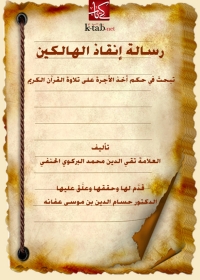 كتاب
k-tab.net
رسالة إنقاذ الهالكين
تبحث في حكم أخذ الأجرة على تلاوة القرآن الكريم
تأليف
العلامة تقي الدين محمد البركوي الحنفي
قدم لها وحققها وعلق عليها
الدكتور حسام الدين بن موسى عفانه